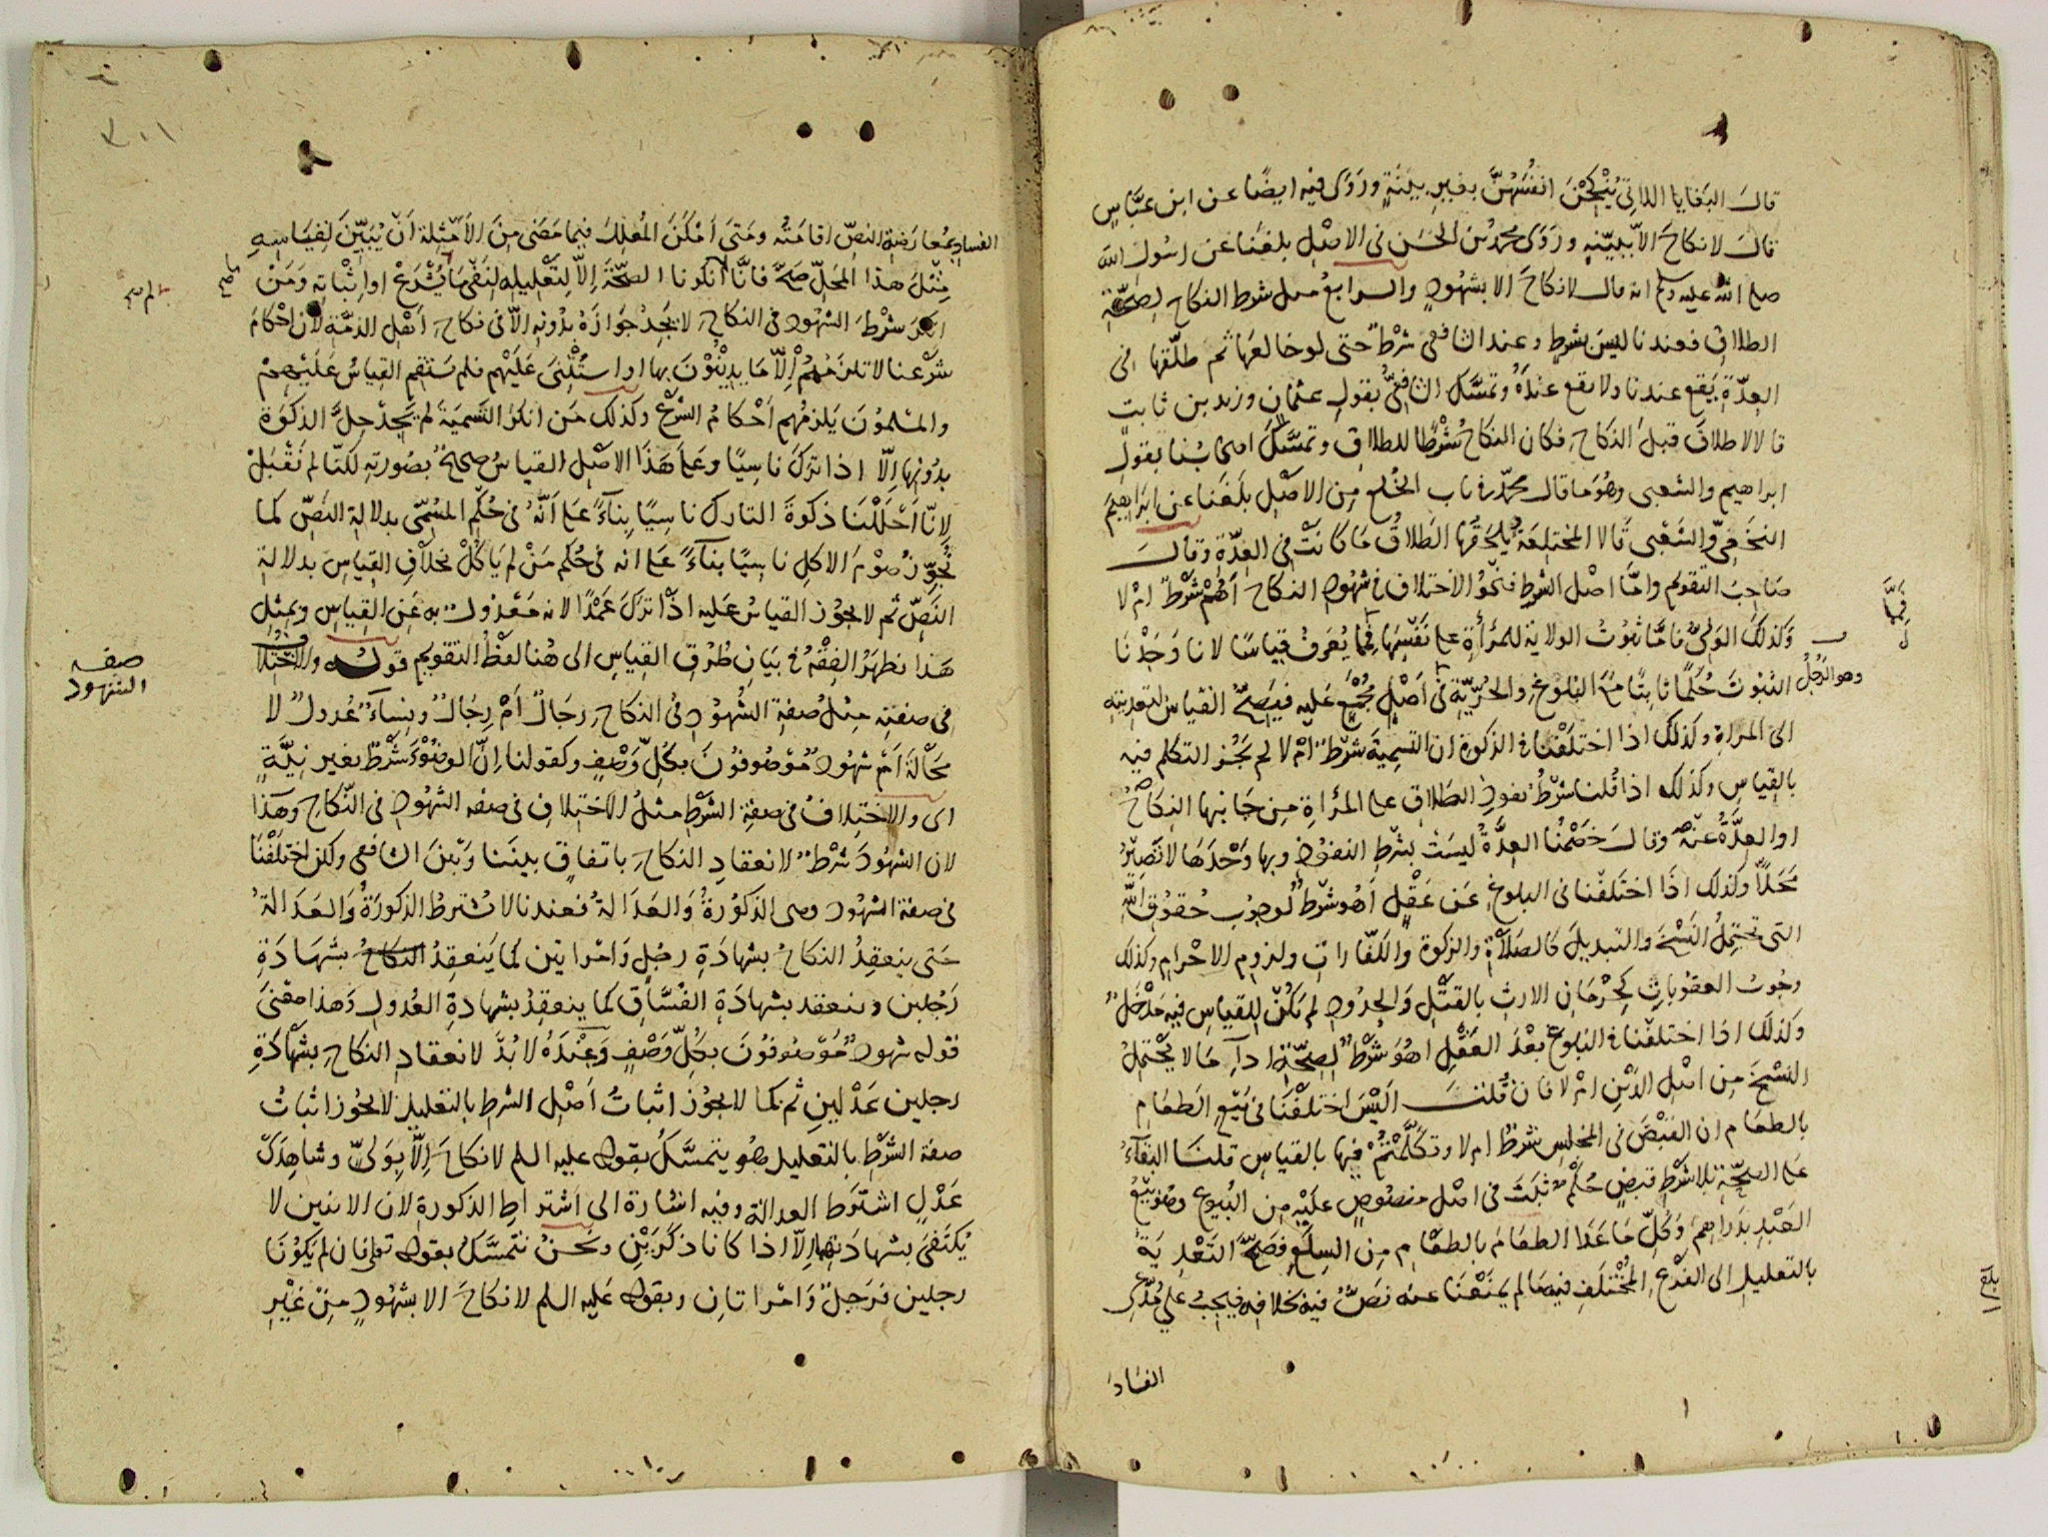 قال البغايا اللاتي يُنْكِحْنَ انفُسَهُنَّ بغير بينةٍ وروى فيه ايضًا عن ابن عبّاسٍ
قال لا نكاح الا ببيّنةٍ وروى محمد بن الحسن فى الاصْل بلغنا عن رسول الله
صلى الله عليه وسلم انه قال لا نكاح الا بشهودٍ والرابع مثل شرط النكاح لصحّة
الطلاق فعندنا ليس بشرطٍ وعند الشافعى شرطٌ حتى لو خالعها ثم طلّقها فى
العدّة يقع عندنا ولا يقع عنده وتمسّك الشافعىُّ بقول عثمان وزيد بن ثابت
قالا لا طلاق قبل النكاح فكان النكاحُ شرطًا للطلاق وتمسّك اصحابنا بقول
ابراهيم والشعبى وهو ما قال محمّد فى باب الخلع من الاصْل بلغنا عن ابراهيم
النخعىّ والشعبى قالا المختلعة يلحقها الطلاقُ ما كانت فى العدّة وقال
صاحب التقويم وامّا اصْل الشرط فنحو الاختلاف فى شهود النكاح أهُمْ شرْطٌ ام لا
وكذلك الولىّ فامّا ثبوتُ الولاية للمرأة على نفسها فيما يُعرفُ قياسًا لانا وجدنا
وهو الرجل
الثبوتَ حُكمًا ثابتًا مع البلوغ والحُرّيّة فى اصْلٍ مُجمَعٍ عليه فيصحّ القياسُ لتعديته
الى المراة وكذلك اذا اختلفْنا فى الذكوة ان التسمية شرْطٌ امْ لا لم يجُز التكلم فيه
بالقياس وكذلك اذا قُلنا شرْطُ نفوذ الطلاق على المرْاة من جانبها النكاحُ
او العدّةُ عنه وقال خصْمُنا العدّةُ ليست بشرط النفوذ وبها وحْدها لا تصيرُ
محلاً وكذلك اذا اختلفْنا فى البلوغ عن عقْلٍ أهُو شرْطٌ لوجوب حقوق الله
التى تحتمِلُ النسْخَ والتبديلَ كالصلاة والزكوة والكفّارات ولزوم الاحرام وكذلك
وجُوبُ العقوباتِ كحرْمانِ الارثِ بالقتْلِ والحُدودِ لم يكُنْ للقياس فيه مدْخلٌ
وكذلك اذا اختلفْنا فى البلوغ بعْدَ العقْلِ اهُو شرْطٌ لصحّة ادآءِ ما لا يحْتملُ
النسْخَ من اصْل الدين ام لا فان قُلتَ اليْسَ اختلفْنا فى بيْع الطعام
بالطعام ان القبْضَ فى المجلس شرْطٌ ام لا وتكلّمْتُمْ فيها بالقياس قلنا البقآءُ
على الصحّة بلا شرْط قبضٍ حُكْمٌ ثبَتَ فى اصْلٍ منصُوصٍ عليْهِ من البُيوع وهُو بيْعُ
العبْدِ بدراهِمَ وكُلّ ما عدا الطعامُ بالطعام من السِلَعِ فصحَّ التعْدِيةُ
بالتعليل الى الفرْعِ المُخْتلَفِ فيه ما لم يمنعْنا عنه نصٌّ فيه بخلافه فيجبُ على مُدّعى
الفساد
الفساد بمُعارضة النصّ اقامتُه ومتى امكن المُعلِلَ فيما مضى منَ الامْثلة انْ يُبيِّنَ لقياسِهِ
مثْلَ هذا المحلّ صحَّ فانّا ما انكرنا الصحّةَ إلاّ لتعْليله لنفْىِ ما يُشْرعْ او اثْباتِهِ ومَنْ
انكر شرْطَ الشهُود فى النكاح لا يجدُ جوازَهُ بدُونه الاّ فى نكاح اهْل الذمّة لان احْكام
شرْعنا لا تلزمُهُمْ إلاّ ما يدينُونَ بها او استُثْنِىَ عليْهم فلم يستقم القياسُ عليْهم
والمسْلمُونَ يلزمُهم احْكامُ الشرْع وكذلك مَن انكرَ التسْميةَ لم يجدْ حِلَّ الذكوة
بدُونها إلّا اذا تركَ ناسيًا وعلى هذا الاصْل القياسُ صحيحٌ بصُورته لكنّا لم نقْبلْ
لانّا احْلَلْنا ذكوةَ التارك ناسِيًا بنآءً على انّهُ فى حُكْم المُسَمّى بدلالة النصّ كما
نُجوّزُ صوْمَ الاكل ناسيًا بنآءً على انه فى حُكْم مَنْ لم ياكُلْ بخلاف القياس بدلالة
النصّ ثم لا يجوز القياسُ عليه اذا تركَ عمْدًا لانه معْدُولٌ به عن القياس وبمثل
هذا يظهرُ الفقْهُ فى بيان طُرُق القياس الى هُنا لفظُ التقويم قولُه والاختلافُ
فى صفته مثلُ صُفة الشهُود فى النكاح رجالٌ امْ رجالٌ ونسآءٌ عُدولٌ لا
محالةَ امْ شهُودٌ موْصُوفُونَ بكلّ وصْفٍ وكقولنا إنّ الوضُوْءَ شرْطٌ بغير نيّةٍ
اى والاختلافُ فى صفة الشرْط مثلُ الاختلاف فى صفه الشهُود فى النّكاح وهذا
لان الشهُودَ شرْطٌ لانعقاد النكاح باتفاقٍ بيننا وبيْنَ الشافعى ولكن اختلفْنا
فى صفة الشهُود وهى الذكُورةُ والعدالةُ فعندنا لا تُشترطُ الذكورةُ والعدالةُ
حتى ينعقدُ النكاحُ بشهادةِ رجُلٍ وامْراتيْن كما ينعقِدُ النكاحُ بشهادةِ
رجُلين وينعقد بشهادة الفُسّاق كما ينعقِدُ بشهادةِ العُدول وهذا معْنى
قوله شهودٌ موْصُوفُونَ بكلّ وصْفٍ وعنْدَهُ لا بُدَّ لانعقاد النكاح بشهادةِ
رجلين عدْلين ثم كما لا يجوز اثباتُ اصْل الشرط بالتعليل لا يجوز اثباتُ
صفة الشرْط بالتعليل فهُو يتمسّكُ بقوله عليه السلم لا نكاحَ إلّا بولىٍّ وشاهِدَىْ
عدْلٍ اشترط العدالة وفيه اشارة الى اشتراط الذكورة لان الاثنين لا
يُكتفى بشهادتهما إلاّ اذا كانا ذكريْن ونحنُ نتمسّكُ بقوله تعالى فان لم يكُونا
رجلين فرجلٌ وامْراتان وبقوله عليه السلم لا نكاحَ الا بشهُودٍ منْ غيْر
صفه
الشهود